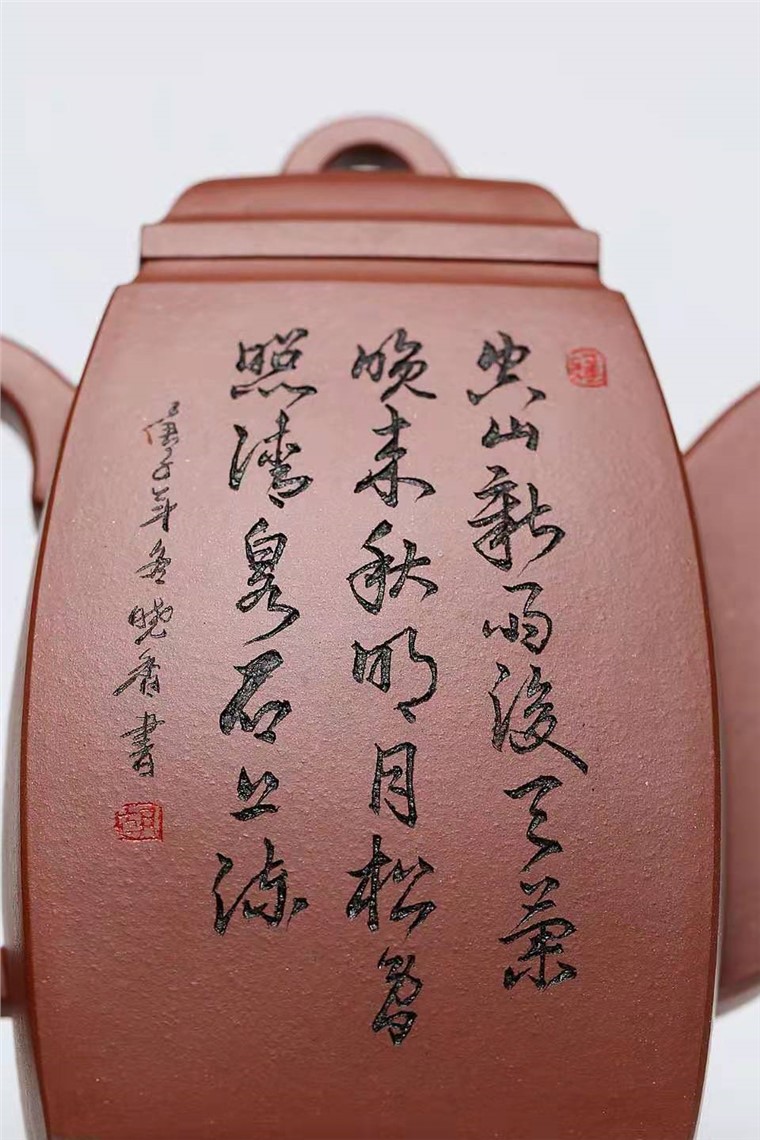 空山新雨後天氣
晚来秋明月松間
照清泉石上流
庚子年冬曉香書